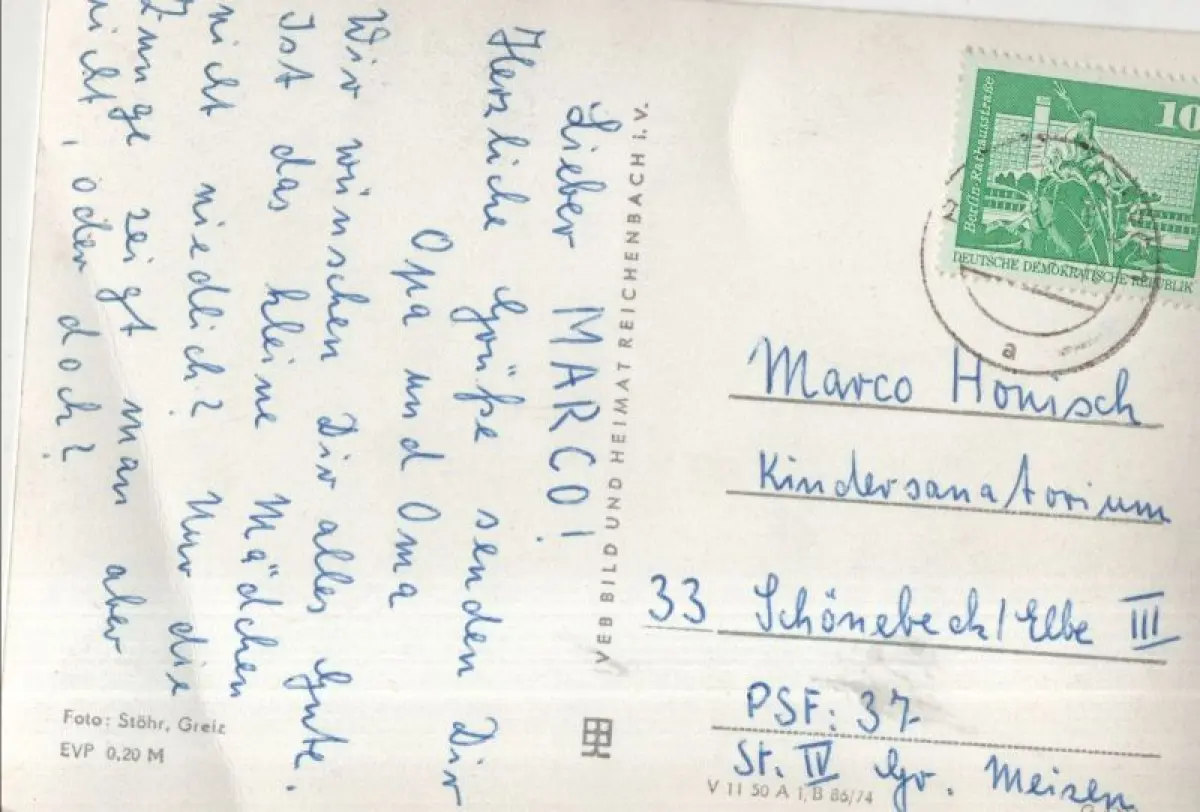 Lieber MARCO!
Herzliche Grüße senden Dir
Opa und Oma
Wir wünschen Dir alles Gute.
Ist das kleine Mädchen
nicht niedlich? Nur die
Zunge zeigt man aber
nicht, oder doch?
Foto: Stöhr, Greiz
EVP 0,20 M
VEB BILD UND HEIMAT REICHENBACH i. V.
10
Berlin-Rathausstraße
DEUTSCHE DEMOKRATISCHE REPUBLIK
a
Marco Honisch
Kindersanatorium
33 Schönebeck/Elbe III
PSF: 37
St. IV Gr. Meisen
V 11 50 A 1, B 86/74